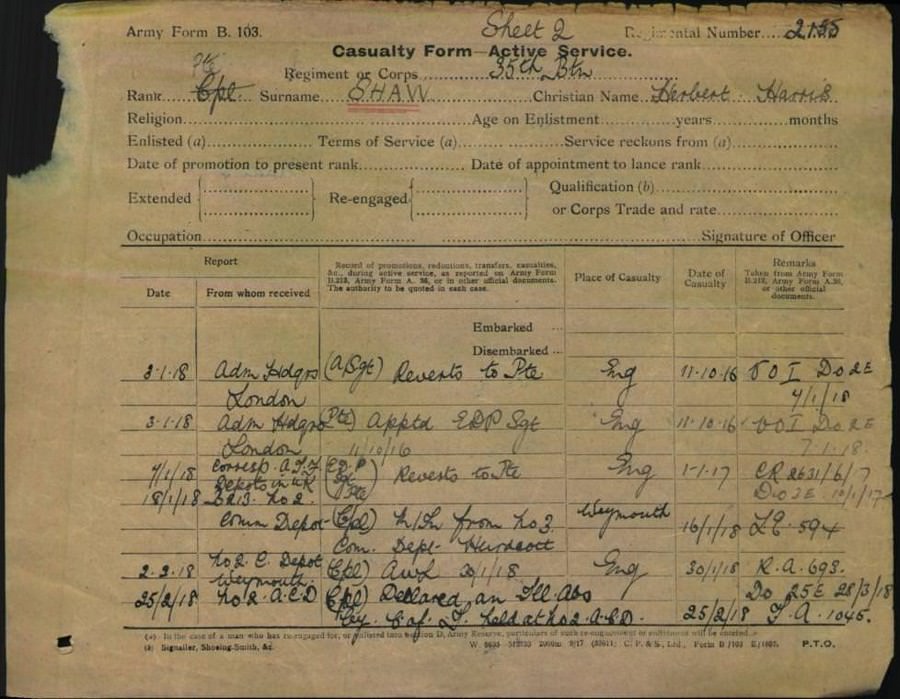 Army Form B. 103. Sheet 2 Regimental Number.... 2155
Casualty Form—Active Service.
Pte Regiment or Corps 35th Btn
Rank Cpl. Surname SHAW Christian Name Herbert Harris
Religion Age on Enlistment years months
Enlisted (a) Terms of Service (a) Service reckons from (a)
Date of promotion to present rank Date of appointment to lance rank
Extended Re-engaged Qualification (b)
or Corps Trade and rate
Occupation Signature of Officer
Report
Date From whom received
Record of promotions, reductions, transfers, casualties,
&c., during active service, as reported on Army Form
B.213, Army Form A. 36, or in other official documents.
The authority to be quoted in each case.
Place of Casualty
Date of
Casualty
Remarks
Taken from Army Form
B.213, Army Form A.36,
or other official
documents.
Embarked ...
Disembarked ...
3·1·18 Adm Hdqrs (A Sgt) Reverts to Pte Eng 11·10·16 DO 2E
London 4/1/18
3·1·18 Adm Hdqrs (Pte) Apptd EDP Sgt Eng 11·10·16 DO 2E
London 11/10/16 7·1·18
7/1/18 Corresp. A.I.F. E.D.P Reverts to Pte Eng 1·1·17 CR 2631/6/7
Depots in UK Sgt
18/1/18 B213. No 2. Pte
Comm Depot (Cpl) M/In from No 3 Weymouth 16/1/18 594
Com. Dept- Hurdcott
2·2·18 No 2 C. Depot (Cpl) AWL 30/1/18 Eng 30/1/18 R.A. 693.
Weymouth. Do 25E 28/3/18
25/2/18 No 2 A.C.D (Cpl) Declared an Ill. Abs
by C of I. held at No 2 A.C.D. 25/2/18 1045.
(a) In the case of a man who has re-engaged for, or enlisted into Section D, Army Reserve, particulars of such re-engagement or enlistment will be entered.
(b) Signaller, Shoeing-Smith, &c. P.T.O.